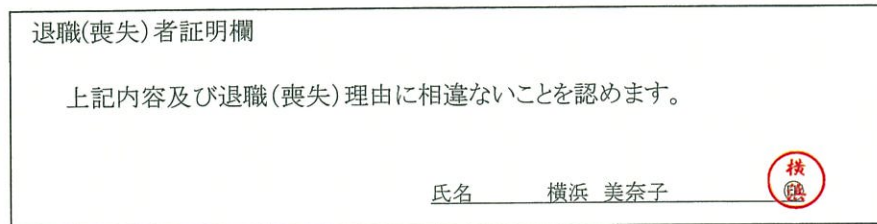 退職(喪失)者証明欄
上記内容及び退職(喪失)理由に相違ないことを認めます。
氏名 横浜 美奈子 ㊞
横浜